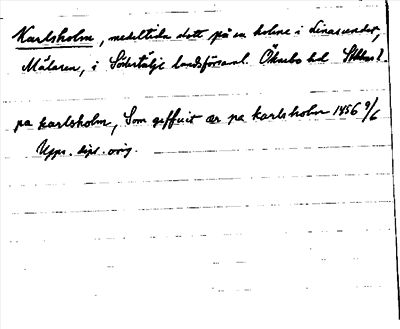 Karlsholm, medeltida slott på en holme i Linasundet,
Mälaren, i Södertälje landsförsaml. Öknebo hd Sthlms l.
pa karlsholm, Som geffuit ær pa karlsholm 1456 9/6
Upps. dipl. orig.